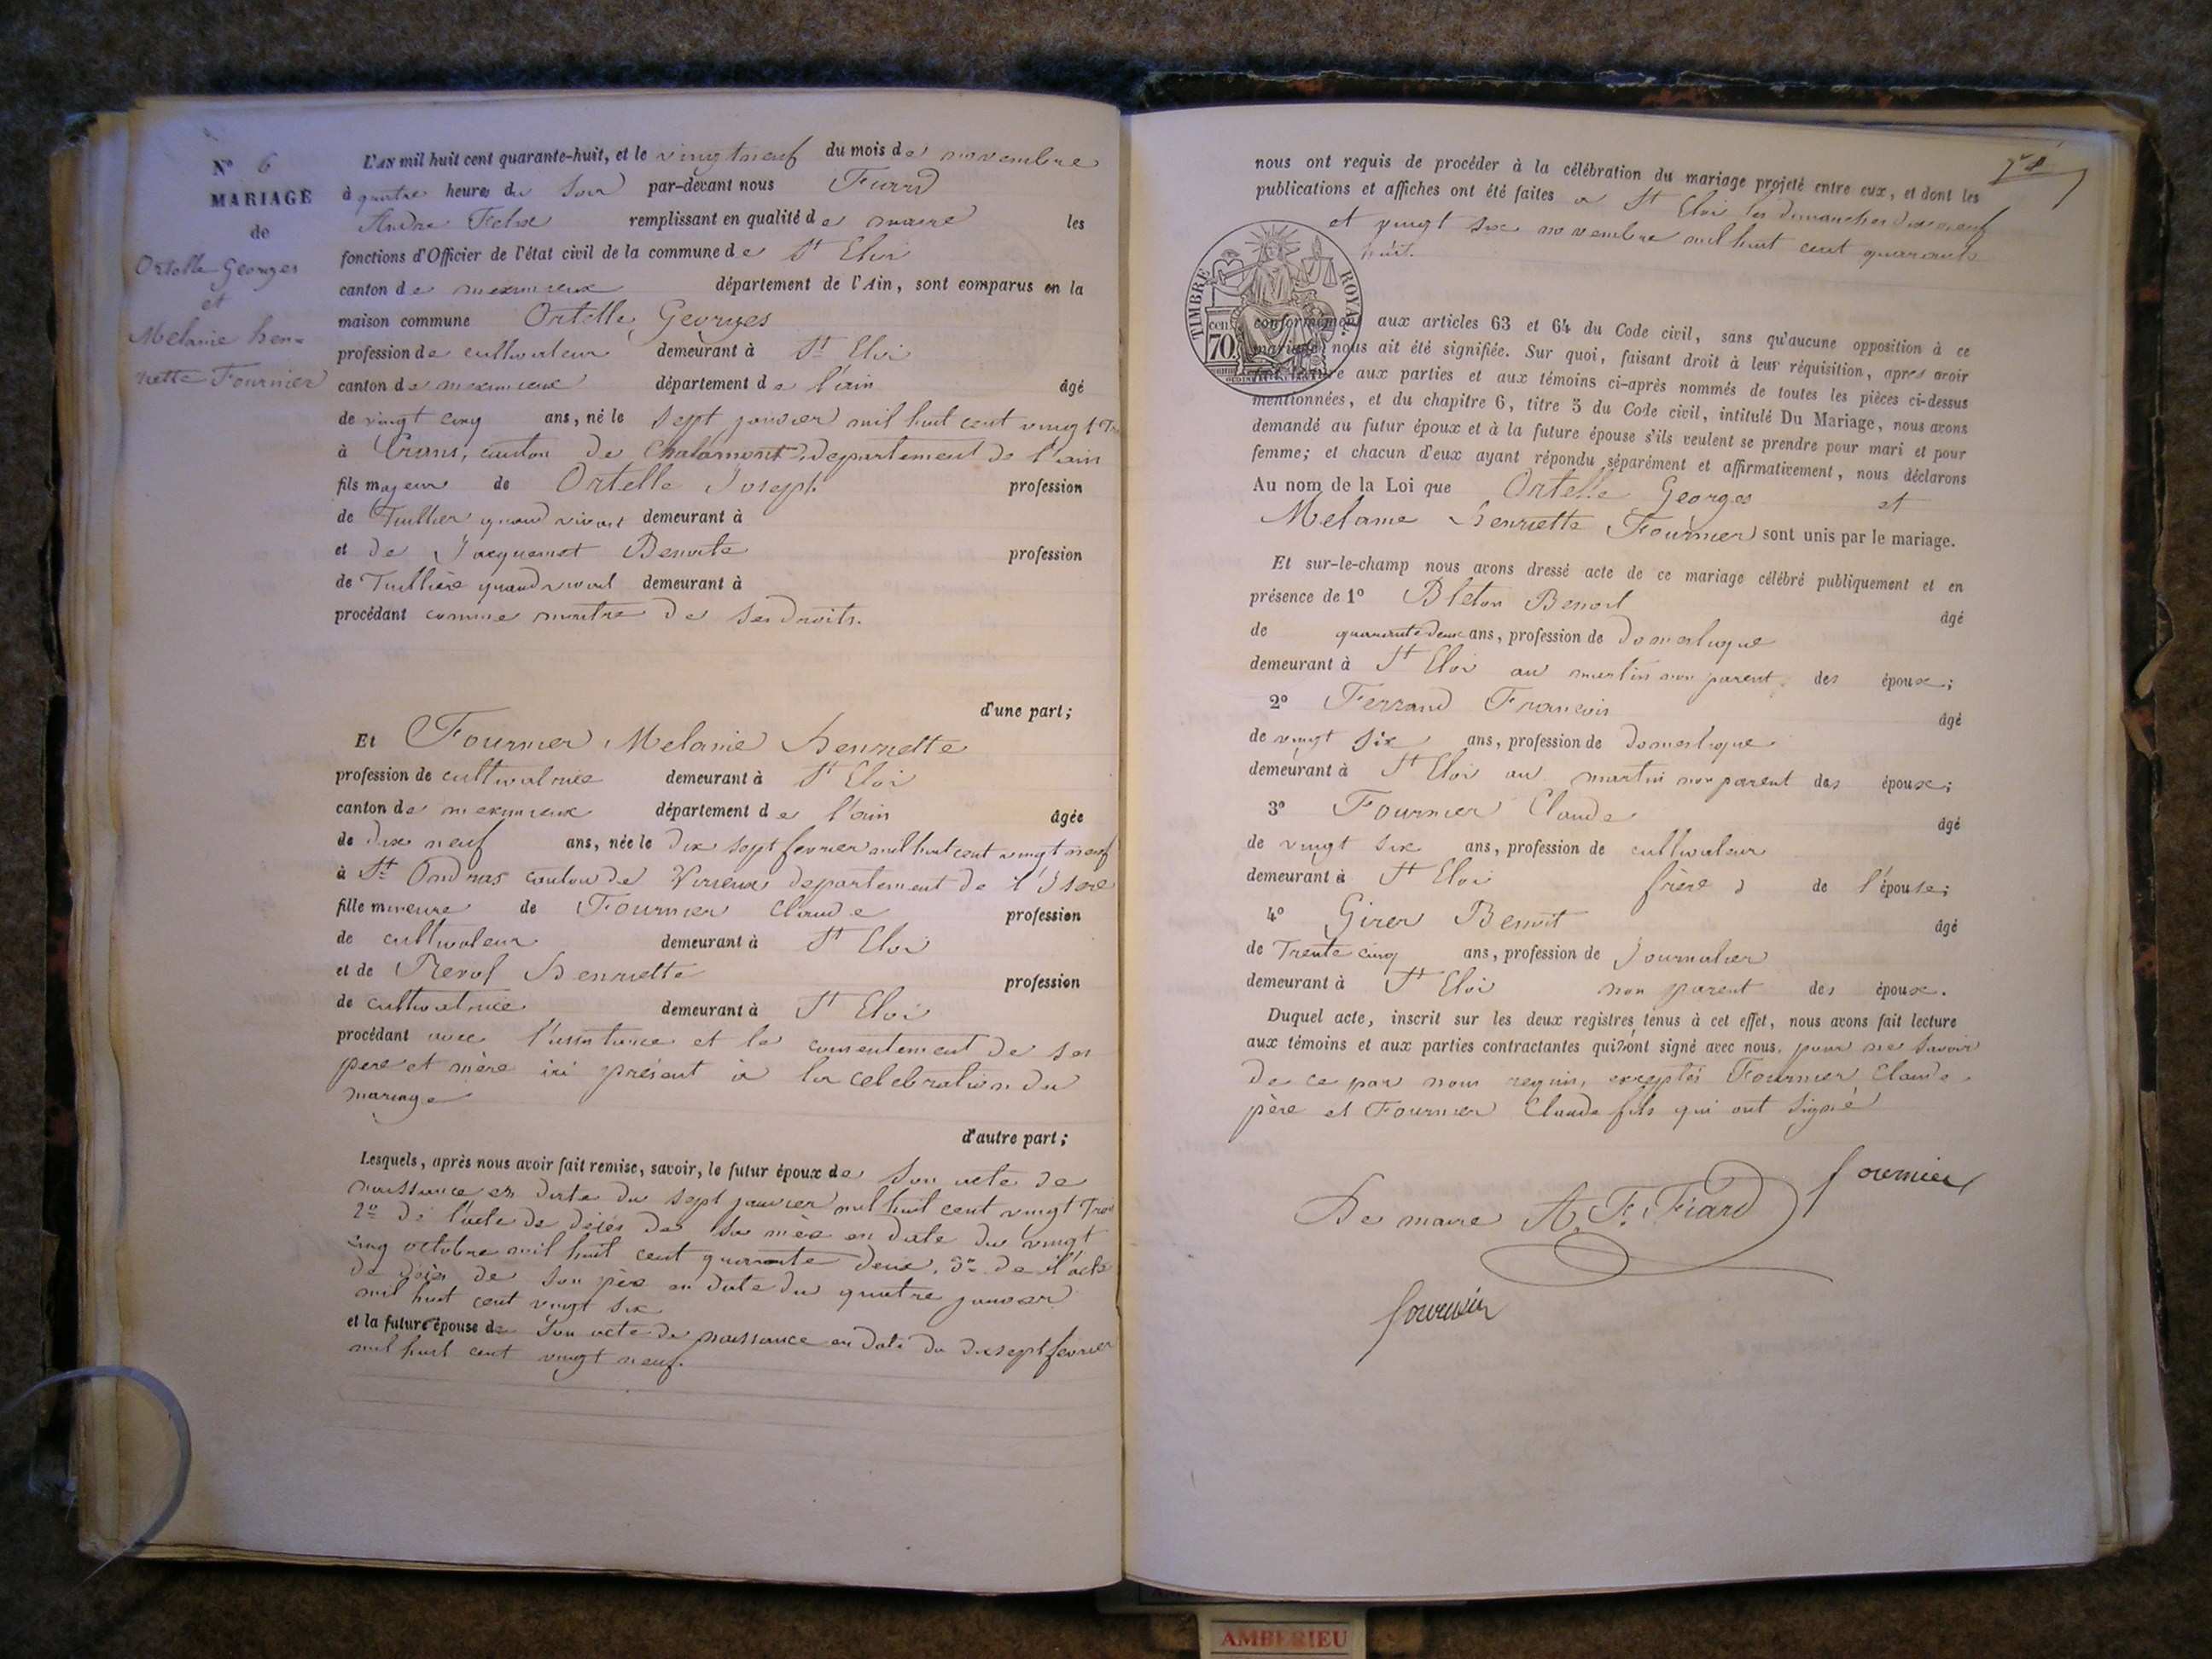 N° 6
MARIAGE
de
Ortelle Georges
et
Melanie hen=
riette Fournier
L'AN mil huit cent quarante-huit, et le vingt neuf du mois de novembre
à quatre heures du soir par-devant nous
André Felix remplissant en qualité de maire les
fonctions d'Officier de l'état civil de la commune de St Eloi
canton de meximieux département de l'Ain, sont comparus en la
maison commune Ortelle Georges
profession de cultivateur demeurant à St Eloi
canton de meximieux département de l'ain âgé
de vingt cinq ans, né le sept janvier mil huit cent vingt
à Crans, canton de Chalamont, departement de l'ain
fils majeur de Ortelle Joseph profession
de Tuillier quand vivait demeurant à
et de Jacquemet Benoite profession
de Tuillière quand vivait demeurant à
procédant comme maitre de ses droits.
d'une part;
Et Fournier Melanie henriette
profession de cultivatrice demeurant à St Eloi
canton de meximieux département de l'ain âgée
de dix neuf ans, née le dix sept fevrier mil huit cent vingt neuf
à St Ondras canton de Virieux departement de l'Isere
fille mineure de Fournier Claude profession
de cultivateur demeurant à St Eloi
et de Revol henriette profession
de cultivatrice demeurant à St Eloi
procédant avec l'assistance et le consentement de ses
pere et mère ici présent à la celebration du
mariage
d'autre part;
Lesquels, après nous avoir fait remise, savoir, le futur époux de son acte de
naissance en date du sept janvier mil huit cent vingt Trois
2° de l'acte de décès de sa mère en date du vingt
cinq octobre mil huit cent quarante deux. 3° de l'acte
de décès de son père en date du quatre janvier
mil huit cent vingt six
et la future épouse de son acte de naissance en date du dix sept fevrier
mil huit cent vingt neuf.
nous ont requis de procéder à la célébration du mariage projeté entre eux, et dont les
publications et affiches ont été faites a St Eloi les dimanches dix neuf
et vingt six novembre mil huit cent quarante
huit.
TIMBRE ROYAL
70
conformément aux articles 63 et 64 du Code civil, sans qu'aucune opposition à ce
mariage nous ait été signifiée. Sur quoi, faisant droit à leur réquisition, apres avoir
fait lecture aux parties et aux témoins ci-après nommés de toutes les pièces ci-dessus
mentionnées, et du chapitre 6, titre 5 du Code civil, intitulé Du Mariage, nous avons
demandé au futur époux et à la future épouse s'ils veulent se prendre pour mari et pour
femme; et chacun d'eux ayant répondu séparément et affirmativement, nous déclarons
Au nom de la Loi que Ortelle Georges et
Melanie henriette Fournier sont unis par le mariage.
Et sur-le-champ nous avons dressé acte de ce mariage célébré publiquement et en
présence de 1° Bleton Benoit âgé
de quarante deux ans, profession de domestique
demeurant à St Eloi au martin non parent des époux;
2° Ferrand François âgé
de vingt six ans, profession de domestique
demeurant à St Eloi au martin non parent des époux;
3° Fournier Claude âgé
de vingt six ans, profession de cultivateur
demeurant à St Eloi frère de l'épouse;
4° Girer Benoit âgé
de Trente cinq ans, profession de Journalier
demeurant à St Eloi non parent des époux.
Duquel acte, inscrit sur les deux registres tenus à cet effet, nous avons fait lecture
aux témoins et aux parties contractantes qui n'ont signé avec nous. pour ne savoir
de ce par nous requis, exceptés Fournier Claude
père et Fournier Claude fils qui ont signé
fournier
Le maire A. F. Fiard
fournier
AMBERIEU